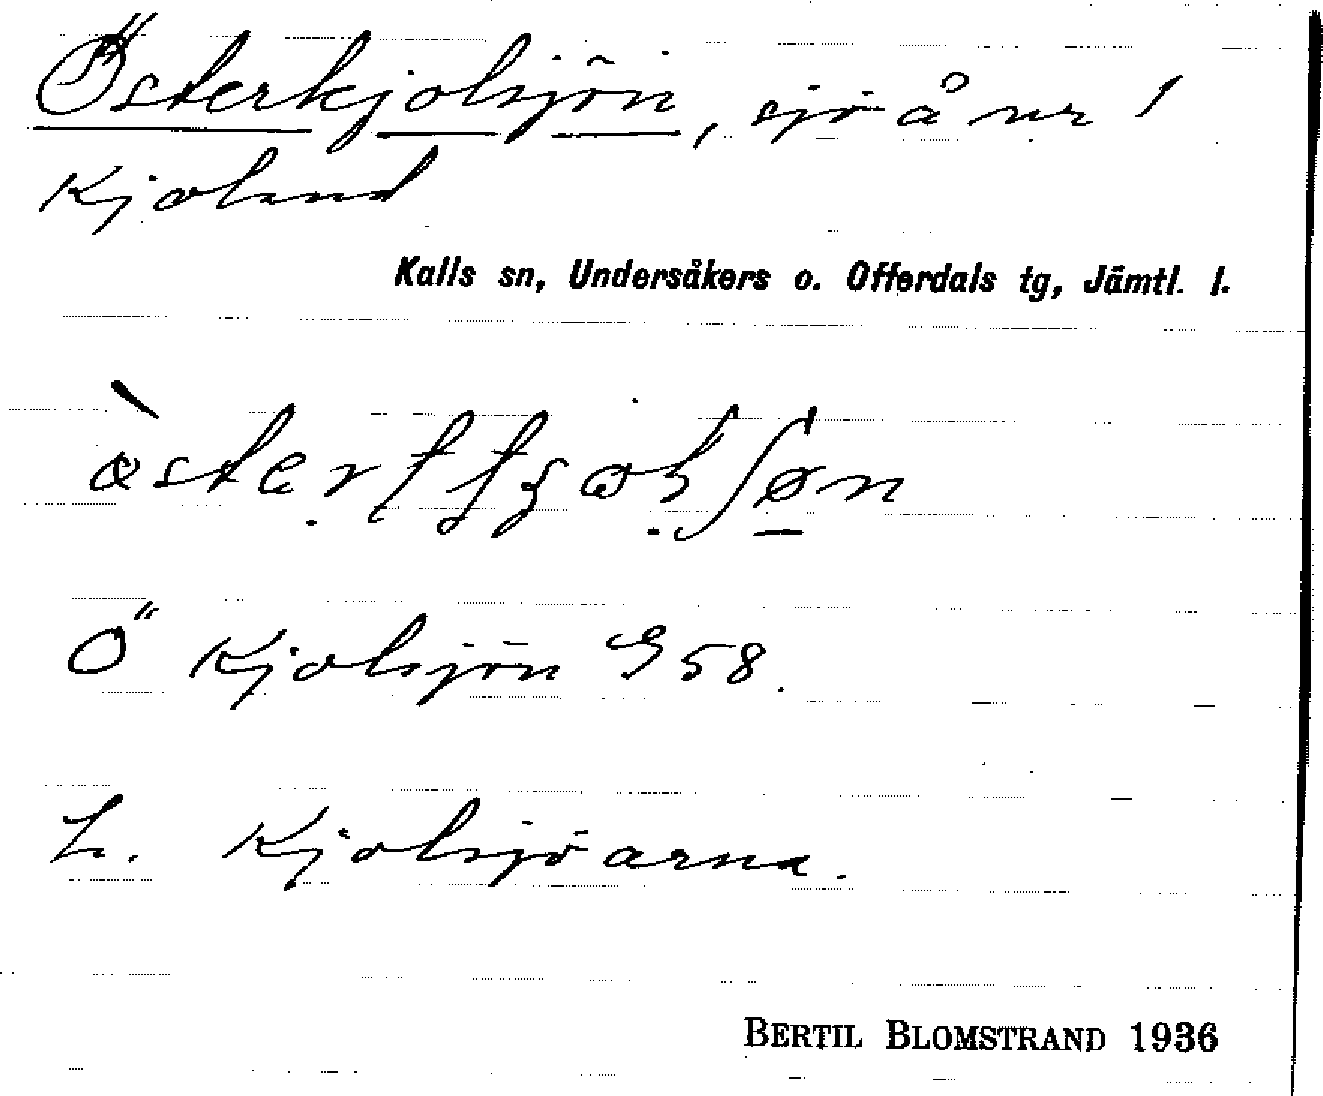 Österkjolsjön, sjö å nr 1
Kjoland
Kalls sn, Undersåkers o. Offerdals tg, Jämtl. l.
Ö Kjolsjön G 58.
L. Kjolsjöarna.
BERTIL BLOMSTRAND 1936